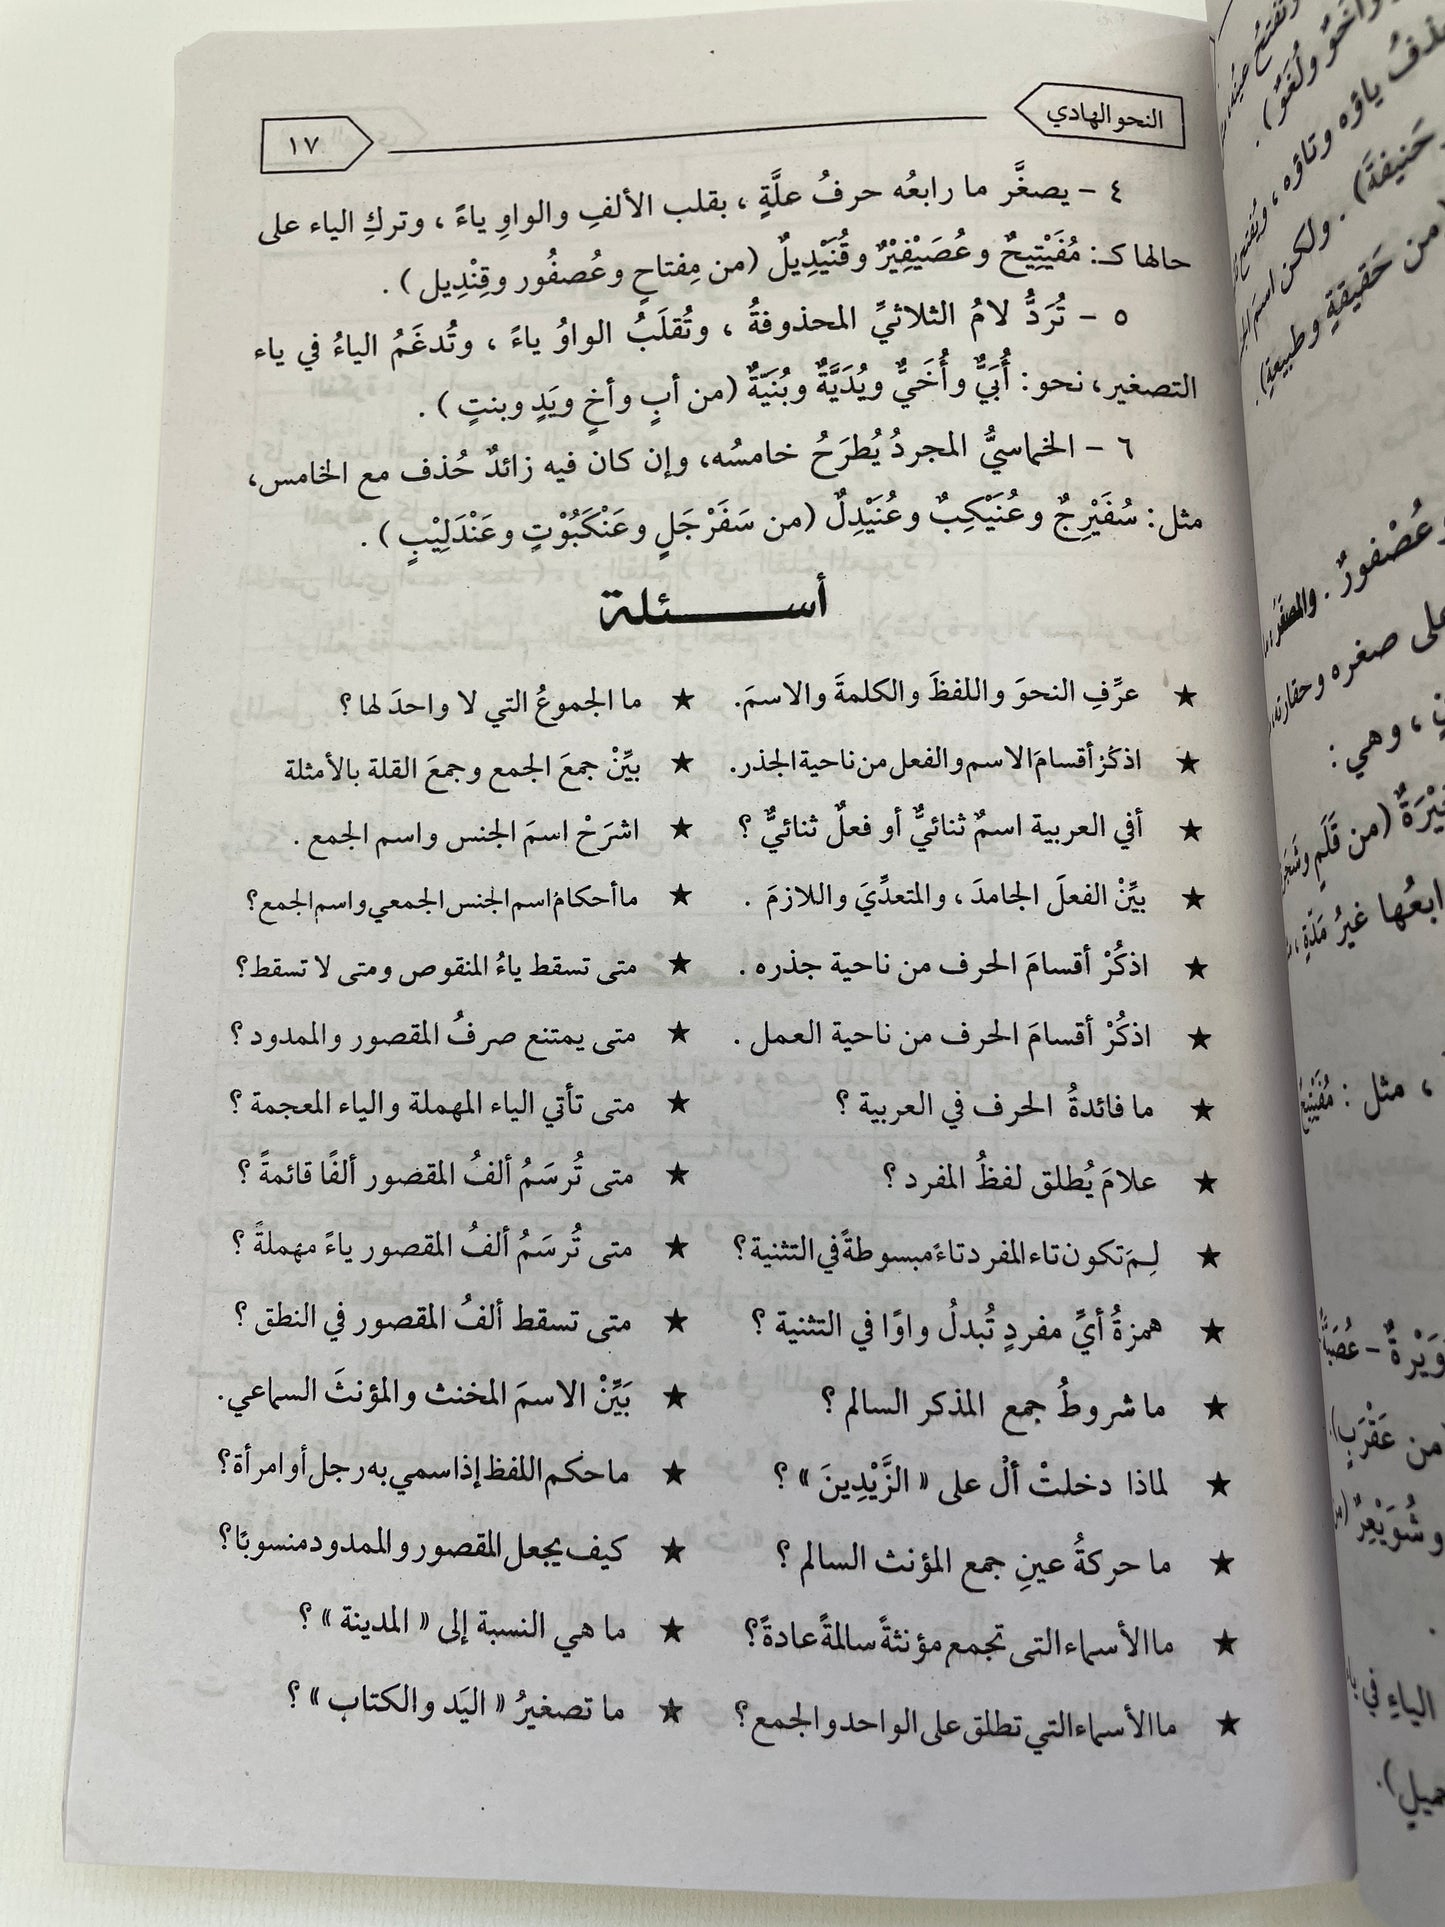 النحو الهادي
١٧
٤ - يصغَّر ما رابعُه حرفُ علَّةٍ ، بقلب الألفِ والواوِ ياءً ، وتركِ الياء على
حالها كـ: مُفَيْتِيحٌ وعُصَيْفِيْرٌ وقُنَيْدِيلٌ (من مِفتاحٍ وعُصفُور وقِنْدِيل ) .
٥ - تُرَدُّ لامُ الثلاثيِّ المحذوفةُ ، وتُقلَبُ الواوُ ياءً ، وتُدغَمُ الياءُ في ياء
التصغير، نحو: أُبَيٌّ وأُخَيٌّ ويُدَيَّةٌ وبُنَيَّةٌ (من أبٍ وأخٍ ويَدٍ وبنتٍ ) .
٦ - الخماسيُّ المجردُ يُطرَحُ خامسُه، وإن كان فيه زائدٌ حُذف مع الخامس،
مثل: سُفَيْرِجٌ وعُنَيْكِبٌ وعُنَيْدِلٌ (من سَفَرْجَلٍ وعَنْكَبُوْتٍ وعَنْدَلِيْبٍ ) .
أســـئلة
★ عرِّفِ النحوَ واللفظَ والكلمةَ والاسمَ.
★ اذكُرْ أقسامَ الاسم والفعل من ناحية الجذر.
★ أفي العربية اسمٌ ثنائيٌّ أو فعلٌ ثنائيٌّ ؟
★ بيِّنْ الفعلَ الجامدَ ، والمتعدِّيَ واللازمَ .
★ اذكُرْ أقسامَ الحرف من ناحية جذره .
★ اذكُرْ أقسامَ الحرف من ناحية العمل .
★ ما فائدةُ الحرف في العربية ؟
★ علامَ يُطلق لفظُ المفرد ؟
★ لِمَ تكون تاء المفرد تاءً مبسوطةً في التثنية ؟
★ همزةُ أيِّ مفردٍ تُبدلُ واوًا في التثنية ؟
★ ما شروطُ جمع المذكر السالم ؟
★ لماذا دخلتْ ألْ على « الزَّيْدِينَ » ؟
★ ما حركةُ عينِ جمع المؤنث السالم ؟
★ ما الأسماء التى تجمع مؤنثةً سالمةً عادةً؟
★ ما الأسماء التي تطلق على الواحد والجمع ؟
★ ما الجموعُ التي لا واحدَ لها ؟
★ بيِّنْ جمعَ الجمع وجمعَ القلة بالأمثلة
★ اشرَحْ اسمَ الجنس واسم الجمع .
★ ما أحكامُ اسم الجنس الجمعي واسم الجمع ؟
★ متى تسقط ياءُ المنقوص ومتى لا تسقط؟
★ متى يمتنع صرفُ المقصور والممدود ؟
★ متى تأتي الياء المهملة والياء المعجمة ؟
★ متى تُرسَمُ ألفُ المقصور ألفًا قائمةً ؟
★ متى تُرسَمُ ألفُ المقصور ياءً مهملةً ؟
★ متى تسقط ألفُ المقصور في النطق ؟
★ بَيِّنْ الاسمَ المخنث والمؤنثَ السماعي.
★ ما حكم اللفظ إذا سمي به رجل أو امرأة ؟
★ كيف يجعل المقصور والممدود منسوبًا ؟
★ ما هي النسبة إلى « المدينة » ؟
★ ما تصغيرُ « اليَد والكتاب » ؟
ولُغَوٌ) .
ياؤه وتاؤه ،
حَنيفةَ) . ولكن اسمَ
من حَقيقةٍ وطبيعةٍ) .
وعُصْفورٌ . والمصغَّر
على صغره وحقارته،
، وهي :
(من قَلَمٍ وشَجَرٍ
غيرُ مَدّةٍ ،
، مثل : مُفَيْتِيحٌ
من عَقْرَبٍ) .
وشُوَيْعِرٌ
الياءِ في